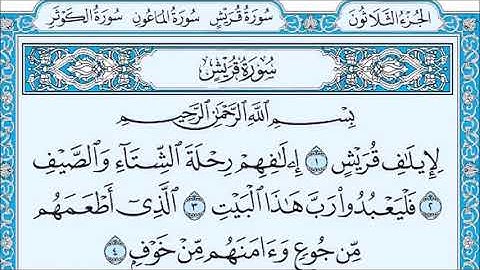 الجزء الثلاثون سورة قريش سورة الماعون سورة الكوثر
سُورَةُ قُرَيْشٍ
بِسْمِ اللَّهِ الرَّحْمَٰنِ الرَّحِيمِ
لِإِيلَٰفِ قُرَيْشٍ ١ إِۦلَٰفِهِمْ رِحْلَةَ الشِّتَآءِ وَالصَّيْفِ
٢ فَلْيَعْبُدُوا۟ رَبَّ هَٰذَا الْبَيْتِ ٣ الَّذِىٓ أَطْعَمَهُم
مِّن جُوعٍ وَءَامَنَهُم مِّنْ خَوْفٍۭ ٤